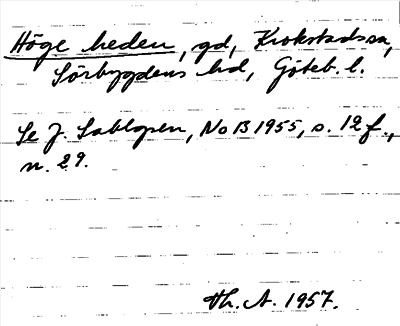 Höge heden, gd, Krokstads sn,
Sörbygdens hd, Göteb. l.
Se J. Sahlgren, NoB 1955, s. 12 f.,
n. 29.
Th. A. 1957.